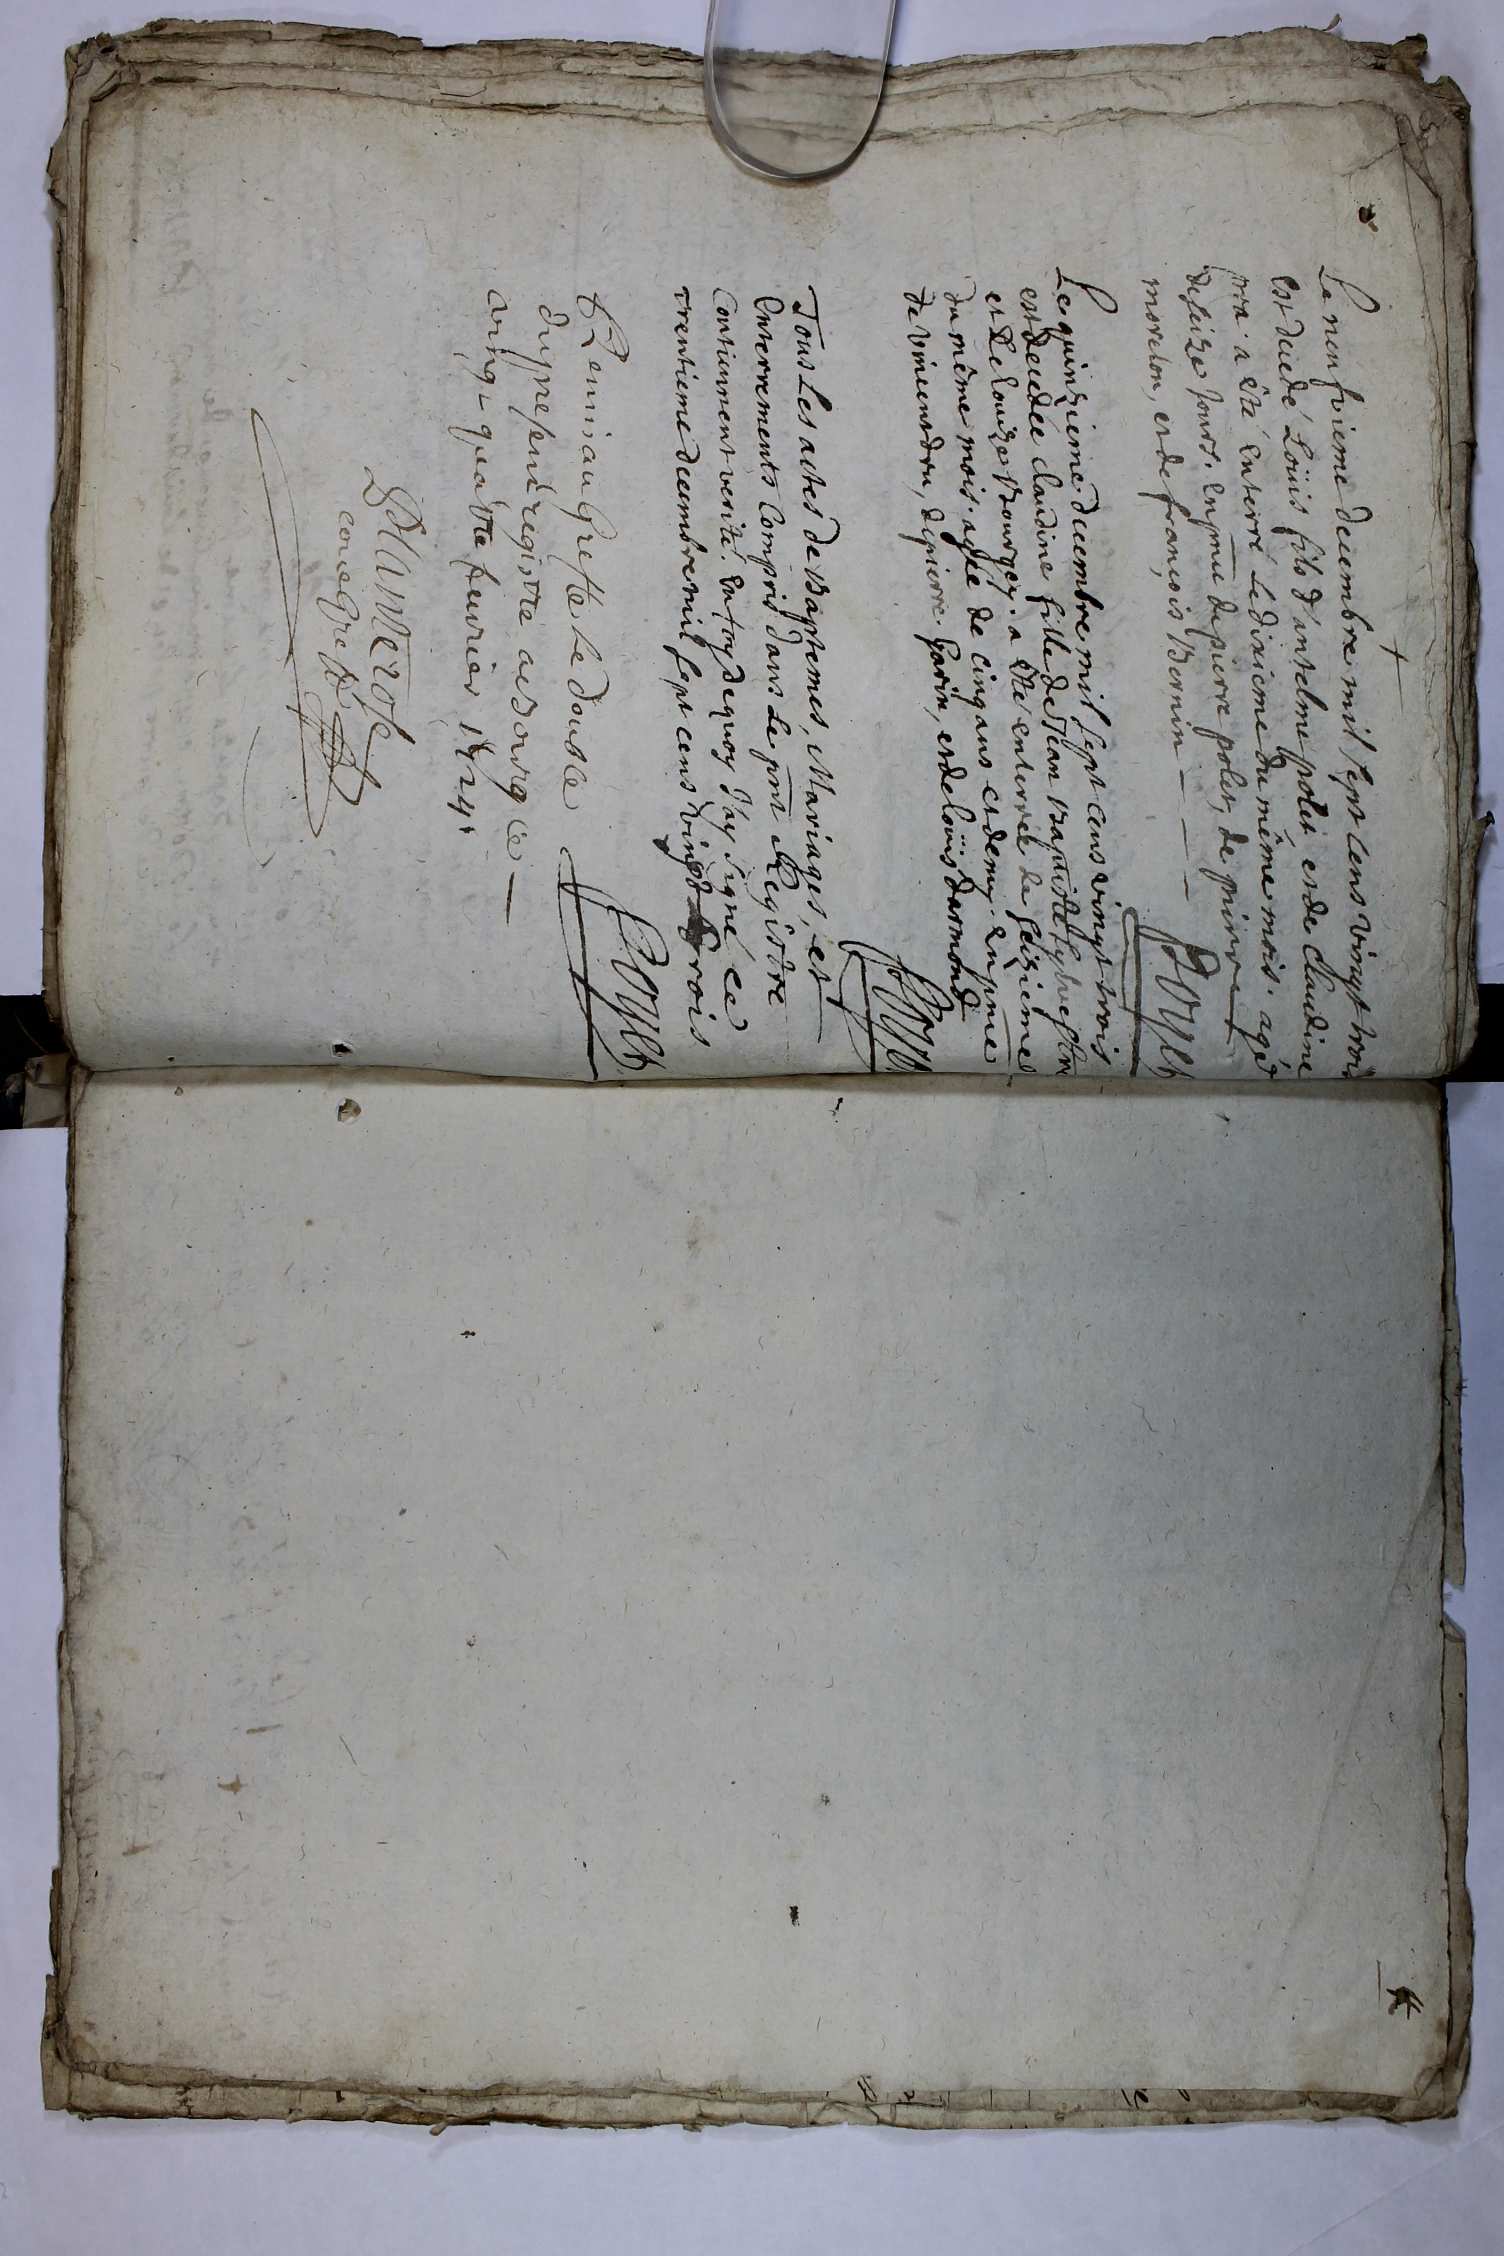 Le neufvieme decembre mil sept cens vingt trois
est decedé Loüis fils d'antelme polet et de Claudine
a êté enterré le dixieme du même mois. agé
de seize jours. en pnce de pierre polet, de pierre
morelon, et de françois Bernin - - - -
Le quinzieme decembre mil sept cens vingt trois
est decedée claudine fille de Jean Baptiste
et de Louize Bourgey. a êté enterrée le seizieme
du même mois. agée de cinq ans et demy. en pnce
de vincent dru, de pierre Garin, et de loüis darmond
Tous les actes de Baptemes, Mariages, et
Enterrements compris dans le pnt Registre
contiennent verité. en foy de quoy J'ay signé ce
trentieme decembre mil sept cens vingt trois
Remis au Greffe le double
du present registre a bourg ce —
vingt-quatre feurier 1724